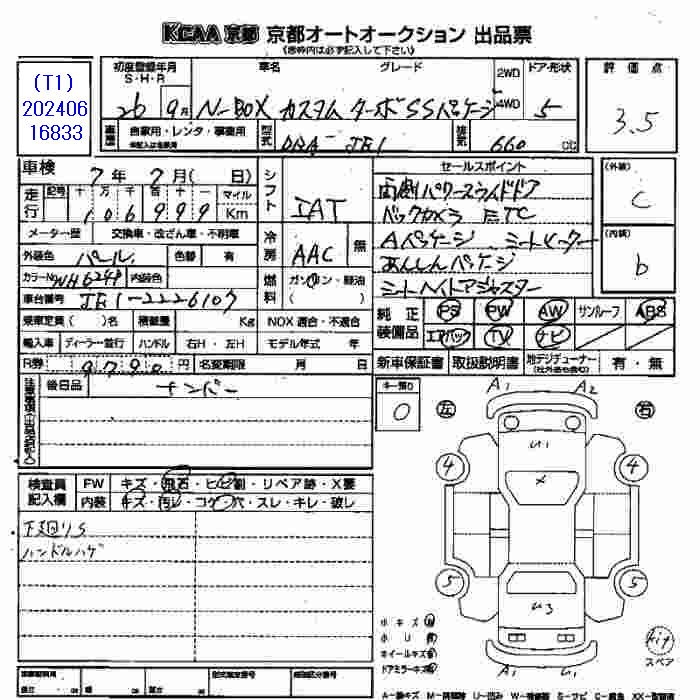 KCAA 京都 京都オートオークション 出品票
(太枠内は必ず記入して下さい)
(T1)
202406
16833
初度登録年月 S・H・R 車名 グレード 2WD 4WD ドア・形状 評価点
26 9月 N-BOX カスタム ターボSSパッケージ 5 3.5
車歴 自家用・レンタ・事業用 型式 DBA-JF1 排気 660 CC
車検 7年 7月 (日) シフト IAT セールスポイント (外装) C
走行 記号 十万千百十一 マイル Km 106999
メーター歴 交換車・改ざん車・不明車 冷房 AAC 無
外装色 パール 色替 有
カラーNo WH624P 内装色 燃料 ガソリン・軽油 ( )
車台番号 JF1-2226107
両側パワースライドドア
バックカメラ ETC
Aパッケージ シートヒーター
あんしんパッケージ
シートヘイトアジャスター
(内装) b
乗車定員( )名 積載量 Kg NOX 適合・不適合
輸入車 ディーラー・並行 ハンドル 右H・左H モデル年式 年
R券 9790 円 名変期限 月 日
純正装備品 PS PW AW サンルーフ ABS
エアバック TV ナビ
新車保証書 取扱説明書 地デジチューナー 有・無
後日品 ナンバー
キー類 0
検査員記入欄 FW キズ・飛石・ヒビ割・リペア跡・X要
内装 キズ・汚レ・コゲ・穴・スレ・キレ・破レ
下廻りS
ハンドルハゲ
左 右
A1 A2
U1
X
4 4
5 5
U3
A1 U1
小キズ
ホイールキズ
ドアミラーキズ
kit
スペア